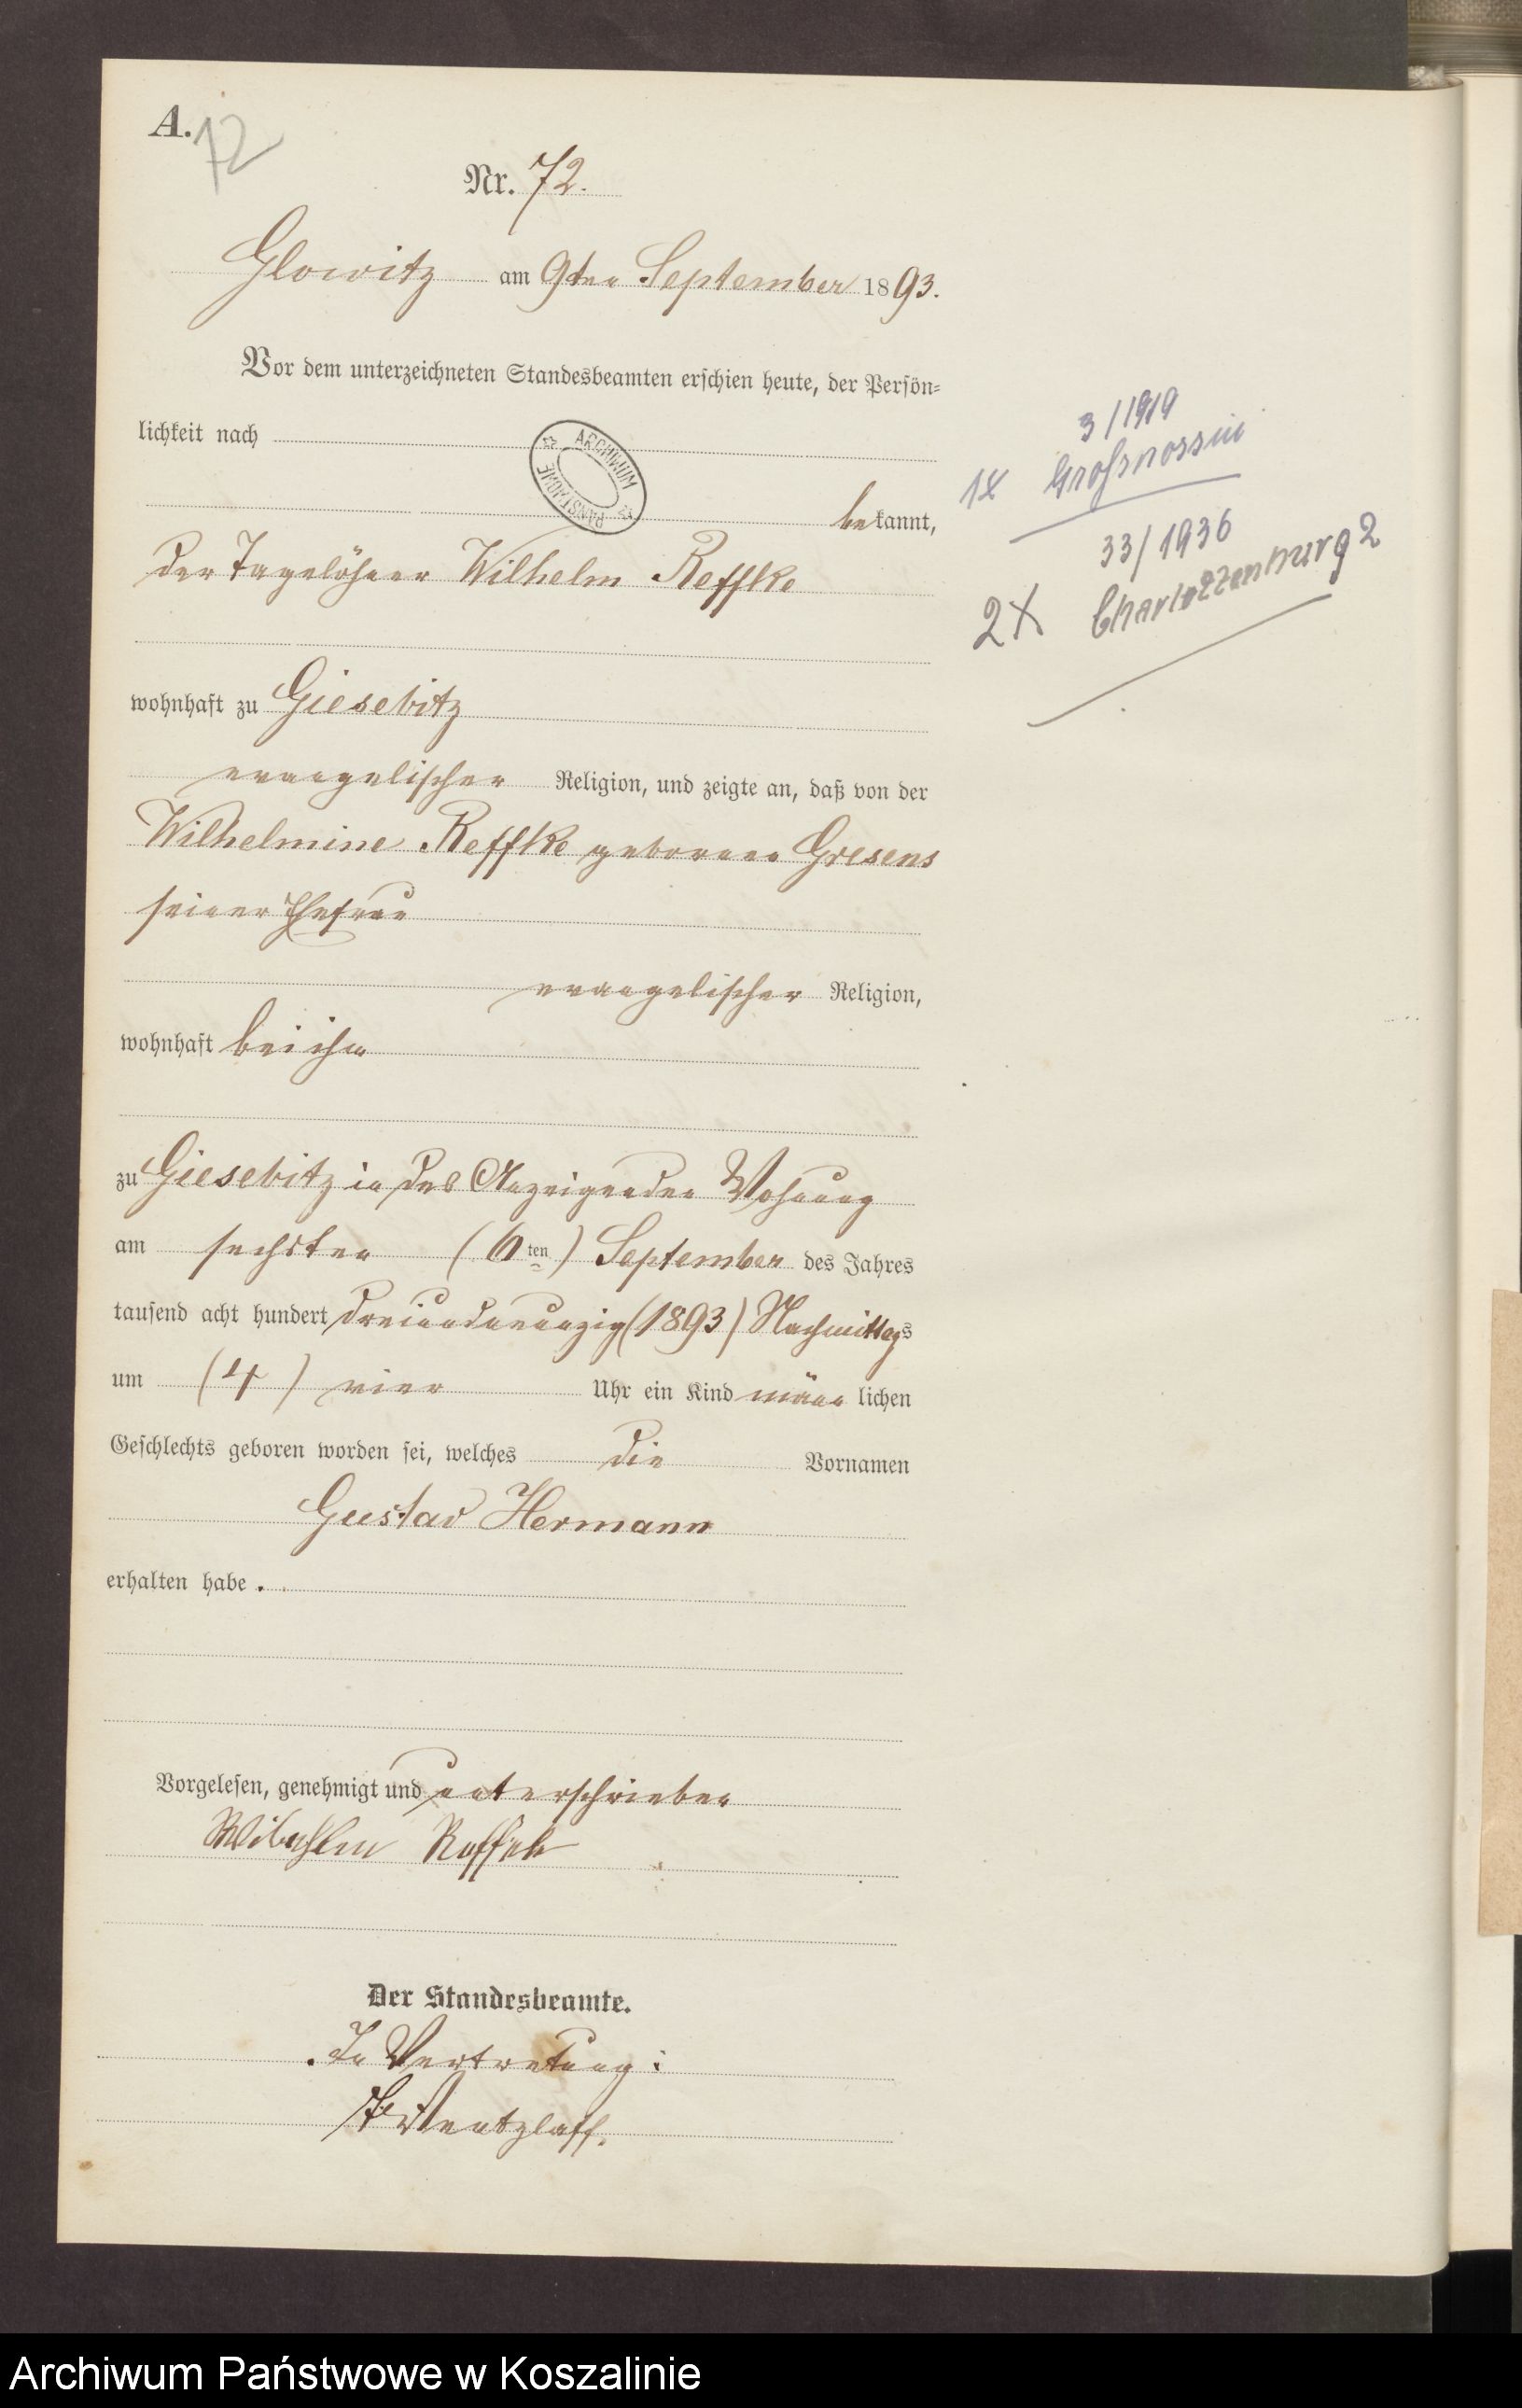 A.
72
Nr. 72.
Glowitz am 9ten September 1893.
Vor dem unterzeichneten Standesbeamten erschien heute, der Persön-
lichkeit nach
ARCHIWUM PAŃSTWOWE
bekannt,
der Tagelöhner Wilhelm Reffke
wohnhaft zu Giesebitz
evangelischer Religion, und zeigte an, daß von der
Wilhelmine Reffke geborenen Gresens
seiner Ehefrau
evangelischer Religion,
wohnhaft bei ihm
zu Giesebitz in des Anzeigenden Wohnung
am sechsten (6ten) September des Jahres
tausend acht hundert dreiundneunzig (1893) Nachmittags
um (4) vier Uhr ein Kind männlichen
Geschlechts geboren worden sei, welches die Vornamen
Gustav Hermann
erhalten habe.
Vorgelesen, genehmigt und unterschrieben
Wilhelm Reffke
Der Standesbeamte.
In Vertretung:
Wentzlaff.
3/1919
1X Großnossin
33/1936
2X Charlottenburg 2
Archiwum Państwowe w Koszalinie